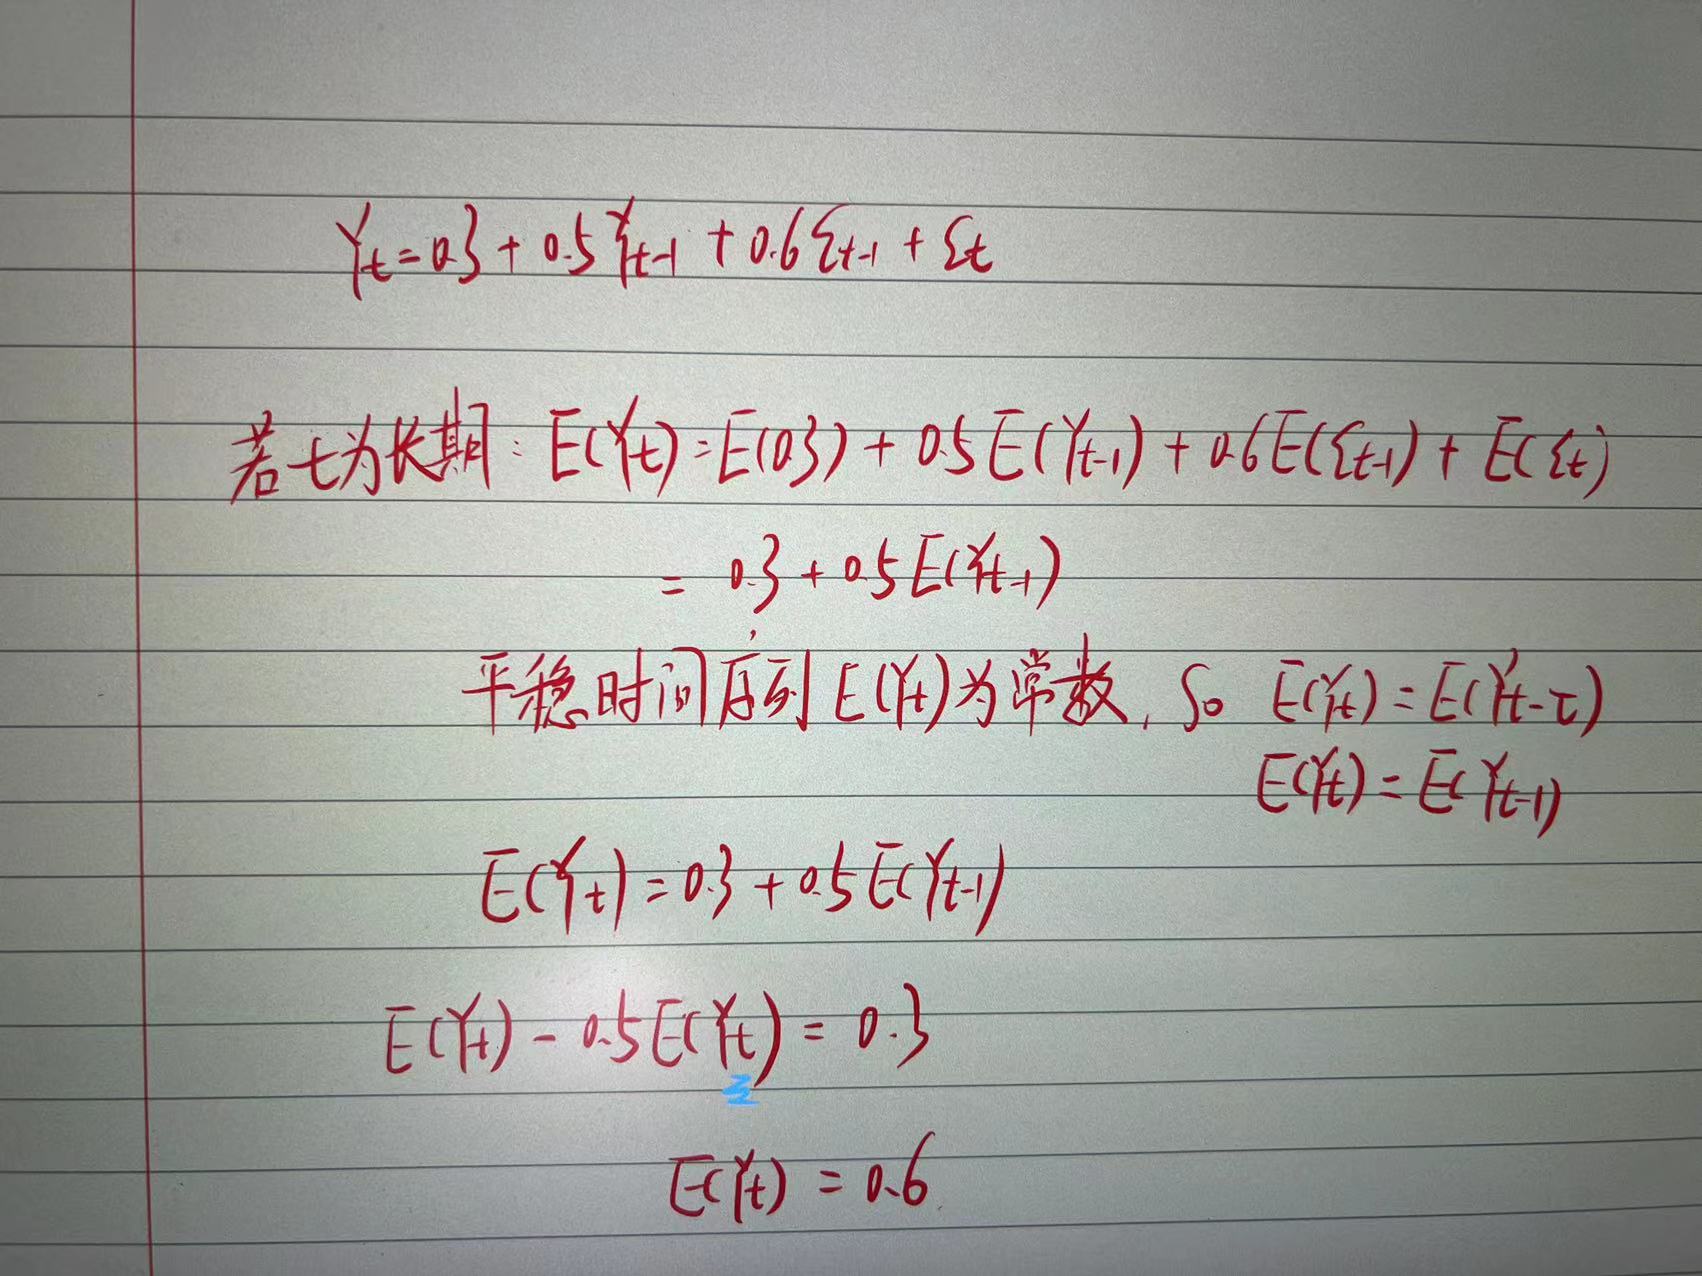 Yt=0.3+0.5Yt-1+0.6εt-1+εt
若t为长期:E(Yt)=E(0.3)+0.5E(Yt-1)+0.6E(εt-1)+E(εt)
=0.3+0.5E(Yt-1)
平稳时间序列E(Yt)为常数,So E(Yt)=E(Yt-τ)
E(Yt)=E(Yt-1)
E(Yt)=0.3+0.5E(Yt-1)
E(Yt)-0.5E(Yt)=0.3
E(Yt)=0.6